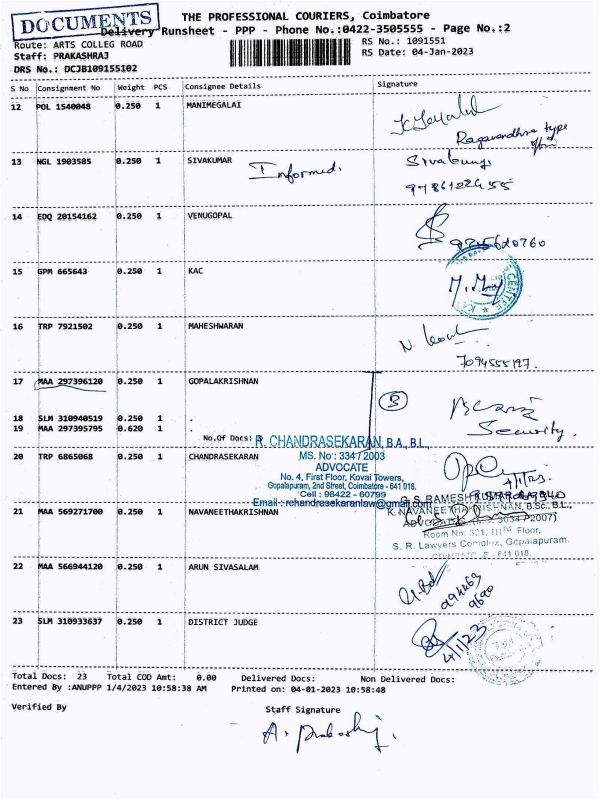 DOCUMENTS
THE PROFESSIONAL COURIERS, Coimbatore
Delivery Runsheet - PPP - Phone No:0422-3505555 - Page No.:2
Route: ARTS COLLEG ROAD
RS No.: 1091551
Staff: PRAKASHRAJ
RS Date: 04-Jan-2023
DRS No.: DCJB109155102
S No Consignment No Weight PCS Consignee Details Signature
12 POL 1540048 0.250 1 MANIMEGALAI
Ragavendhra type
13 NGL 1903585 0.250 1 SIVAKUMAR Informed.
14 EDQ 20154162 0.250 1 VENUGOPAL
15 GPM 665643 0.250 1 KAC
CENTER
16 TRP 7921502 0.250 1 MAHESHWARAN
7094555197.
17 MAA 297396120 0.250 1 GOPALAKRISHNAN
3
18 SLM 310940519 0.250 1
Security.
19 MAA 297395795 0.620 1
No.Of Docs: 3
R. CHANDRASEKARAN, B.A., B.L.,
MS. No : 334 / 2003
20 TRP 6865068 0.250 1 CHANDRASEKARAN
ADVOCATE
No. 4, First Floor, Kovai Towers,
Gopalapuram, 2nd Street, Coimbatore - 641 018.
Cell : 98422 - 60799
Email : rchandrasekaranlaw@gmail.com
4/1/23.
G. S. RAMESH
21 MAA 569271700 0.250 1 NAVANEETHAKRISHNAN
K. NAVANEETHAKRISHNAN, B.Sc., B.L.,
ADVOCATES
3034 / 2007)
Room No: 321, IIIrd Floor,
S. R. Lawyers Complex, Gopalapuram.
COIMBATORE - 641 018.
22 MAA 566944120 0.250 1 ARUN SIVASALAM
23 SLM 310933637 0.250 1 DISTRICT JUDGE
4/1/23
Total Docs: 23 Total COD Amt: 0.00 Delivered Docs: Non Delivered Docs:
Entered By :ANUPPP 1/4/2023 10:58:38 AM Printed on: 04-01-2023 10:58:48
Verified By Staff Signature